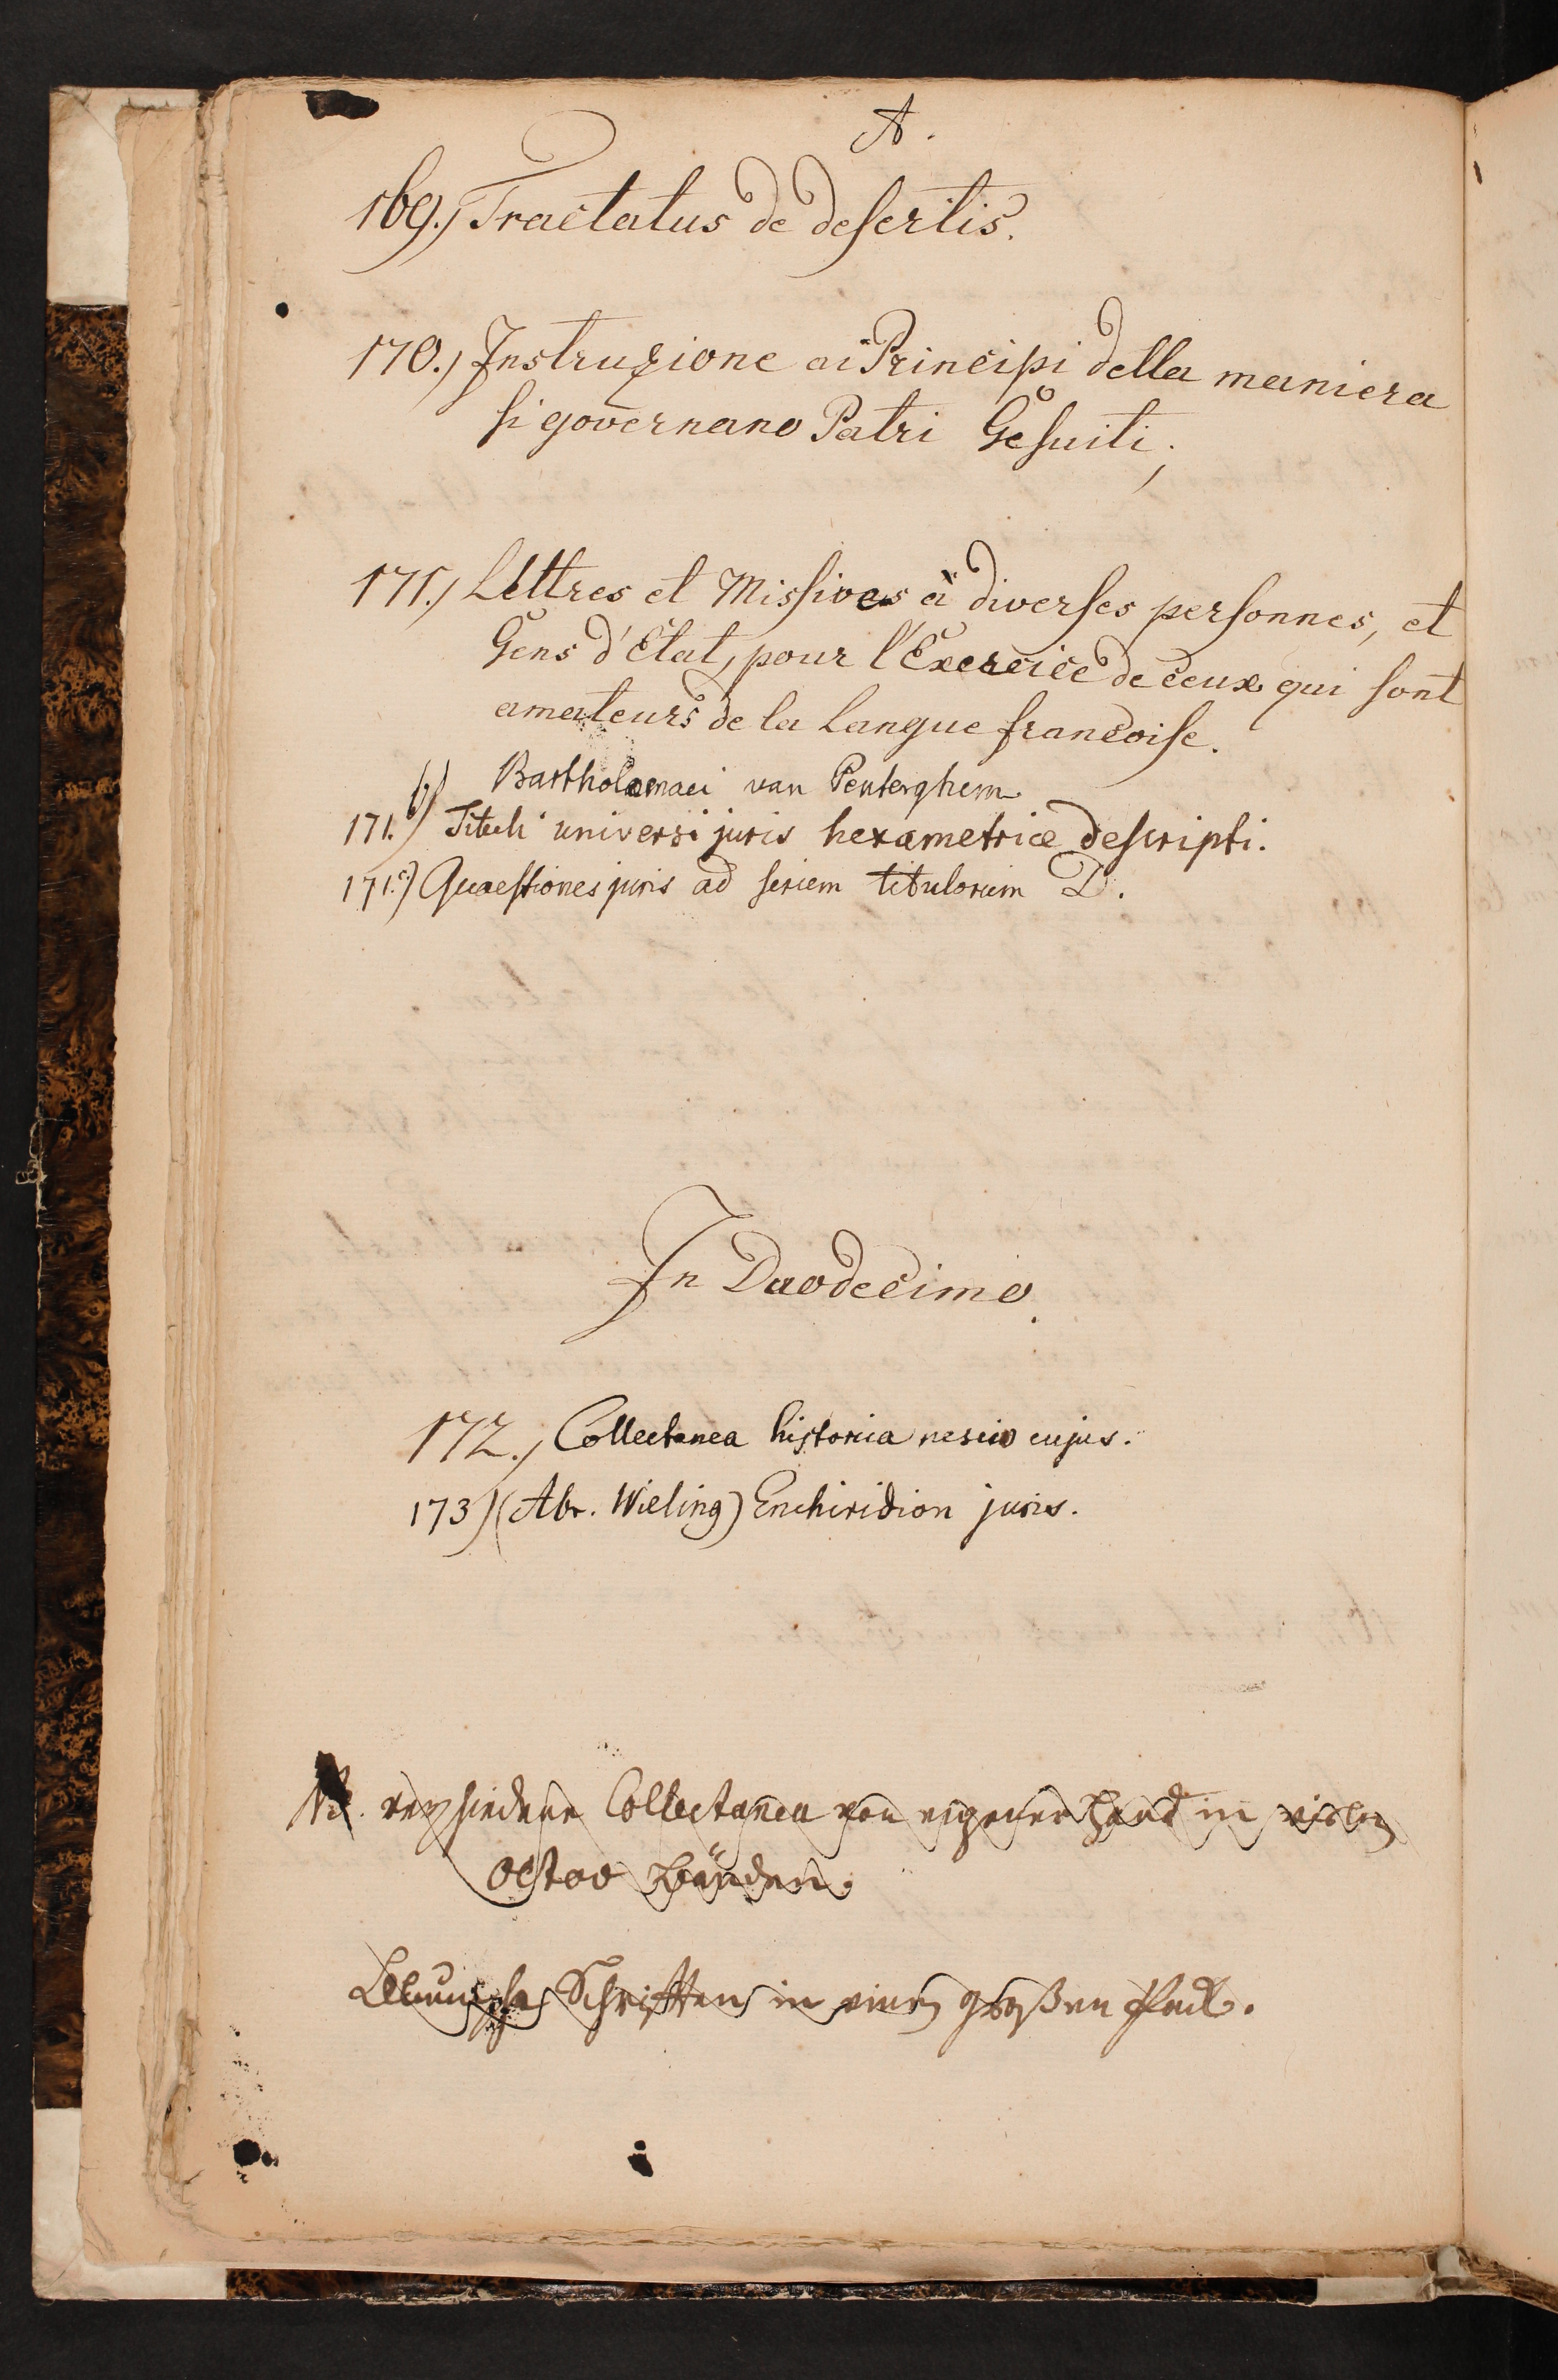 A.
169.) Tractatus de desertis.
170.) Instruzione ai Principi della maniera
si governano Patri Gesuiti;
171.) Lettres et Missives à diverses personnes, et
Gens d'Etat, pour l'Exercice de ceux qui sont
amateurs de la Langue francoise.
Bartholomaei van Penterghem
171. b) Tituli universi juris hexametrice descripti.
171. c) Quaestiones juris ad seriem titulorum D.
In Duodecimo.
172.) Collectanea historica nescio cujus.
173) (Abr. Wieling) Enchiridion juris.
NB. verschiedene Collectanea von eigener Hand in vielen
octav Bänden.
Schrifften in einem großen Pack.